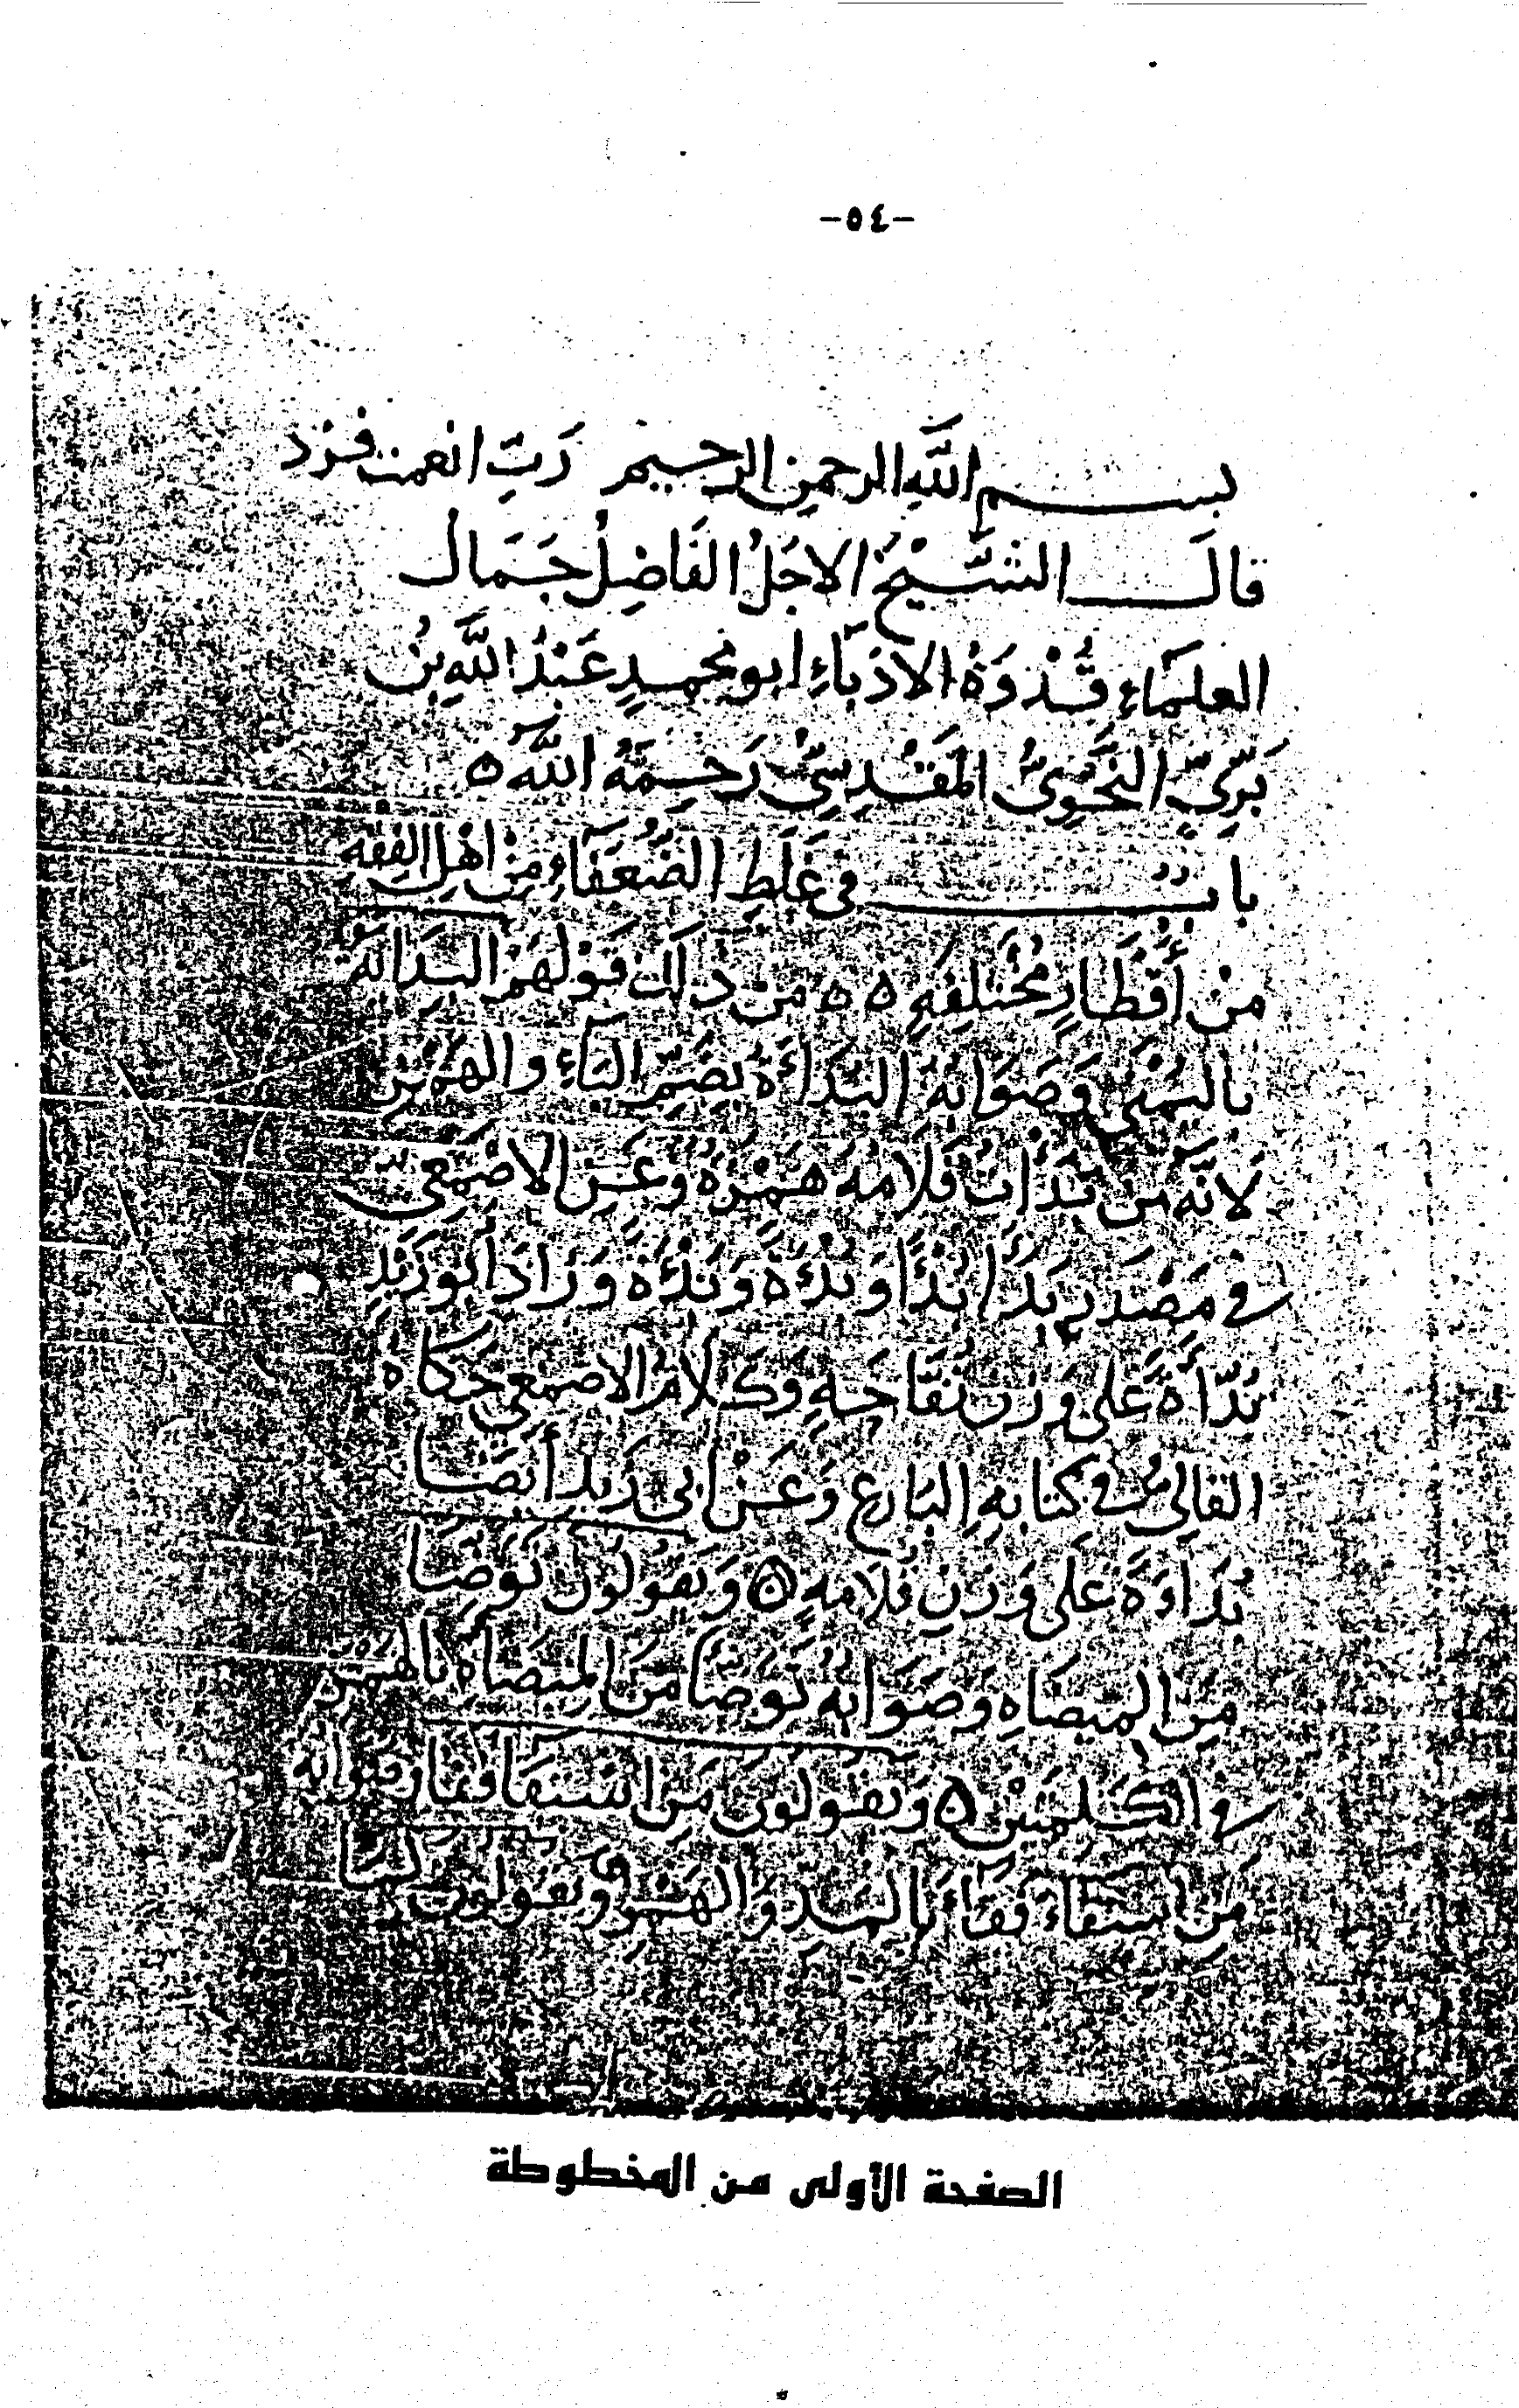 -٥٤-
بسم الله الرحمن الرحيم رَبِّ انعمت فزد
قال الشَّيْخُ الاجَلُّ الفَاضِلُ جَمَال
العلمَاءِ قُدْوَةُ الادَبَاءِ ابو محمدٍ عَبْدُ اللَّهِ بنُ
بَرِّيّ النَّحْوِيُّ المَقْدِسِيُّ رَحِمَهُ اللَّه ه
بابٌ في غَلَطِ الضُّعَفَاءِ مِنْ اهْلِ الفِقْهِ
منْ أَقْطَارٍ مُخْتَلِفَهٍ ه ه من ذلك قَوْلُهُمْ البِدَايَة
باليَاءِ وَصَوَابُهُ البُدَاءَةُ بِضَمِّ البَاءِ والهَمْزِ
لانَّه من بَدَأْتُ فَلَامُهُ هَمْزَةٌ وَعَنِ الاصْمَعِيّ
في مَصْدَرِ بَدَأَ بَدْءًا وَبُدْءَةً وَبَدْءَةً وَزَادَ أَبُو زَيْدٍ
بُدَّأَةً عَلَى وَزْنِ تُفَّاحَهٍ وَكَلَامُ الاصمعي حَكَاهُ
القالي في كتابهِ البَارِعِ وَعَنْ ابى زَيد أَيضَا
بُدَاءَةً عَلَى وَزْنِ قُلَامَهٍ ه وَيَقُولُونَ تَوَضَّا
مِنَ الميضَاهِ وَصَوَابُهُ تَوَضَّأَ منَ المِيضَأَهِ بالهَمْزِ
في الكلمتَيْنِ ه وَيَقُولُونَ مَن اسْتَقَا وقَا وصَوَابُه
مَن اسْتَقَاءَ وَقَاءَ بالمَدِّ وَالهَمْزِ وَيَقُولُونَ
الصفحة الأولى من المخطوطة